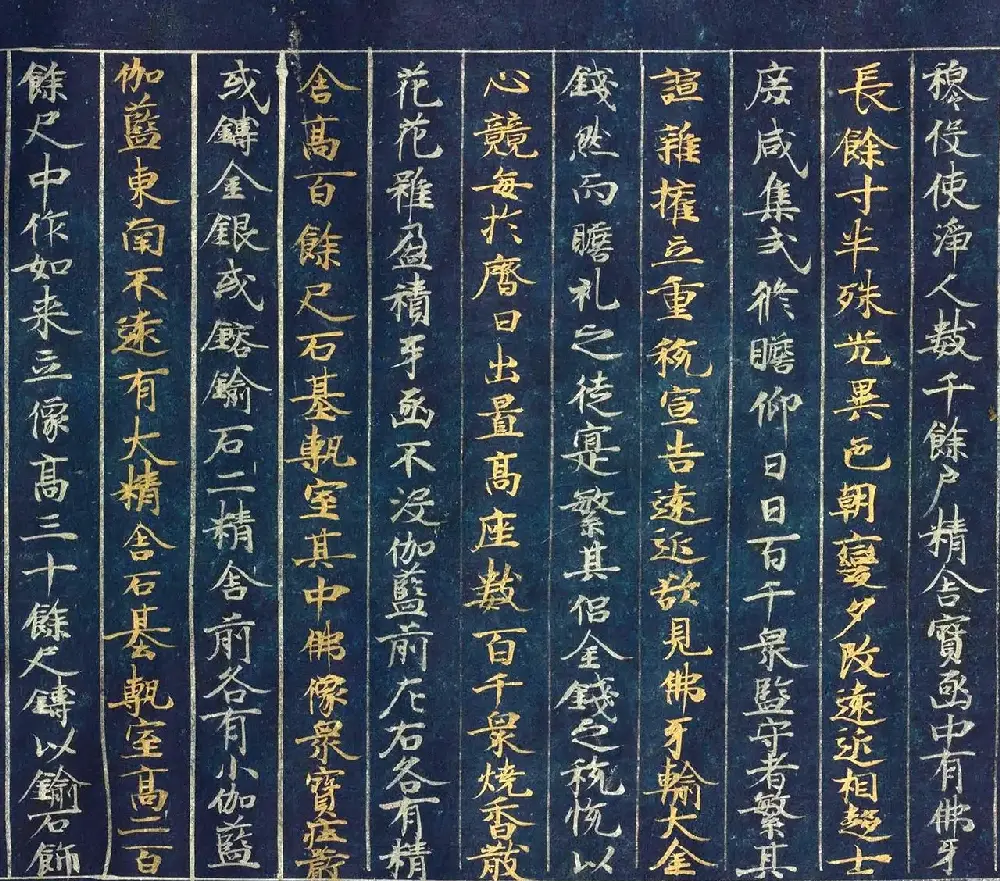 穆伇使淨人數千餘户精舍寶凾中有佛牙
長餘寸半殊光異色朝變夕改遠近相趍士
庶咸集式修瞻仰日日百千衆監守者繁其
諠雜搉立重稅宣告遠近欲見佛牙輸大金
錢然而瞻礼之徒寔繁其侶金錢之稅悅以
心競每於齋日出置高座數百千衆燒香散
花花雖盈積牙凾不没伽藍前左右各有精
舍高百餘尺石基甎室其中佛像衆寶莊嚴
或鑄金銀或鎔鍮石二精舍前各有小伽藍
伽藍東南不遠有大精舍石基甎室高二百
餘尺中作如来立像高三十餘尺鑄以鍮石飾